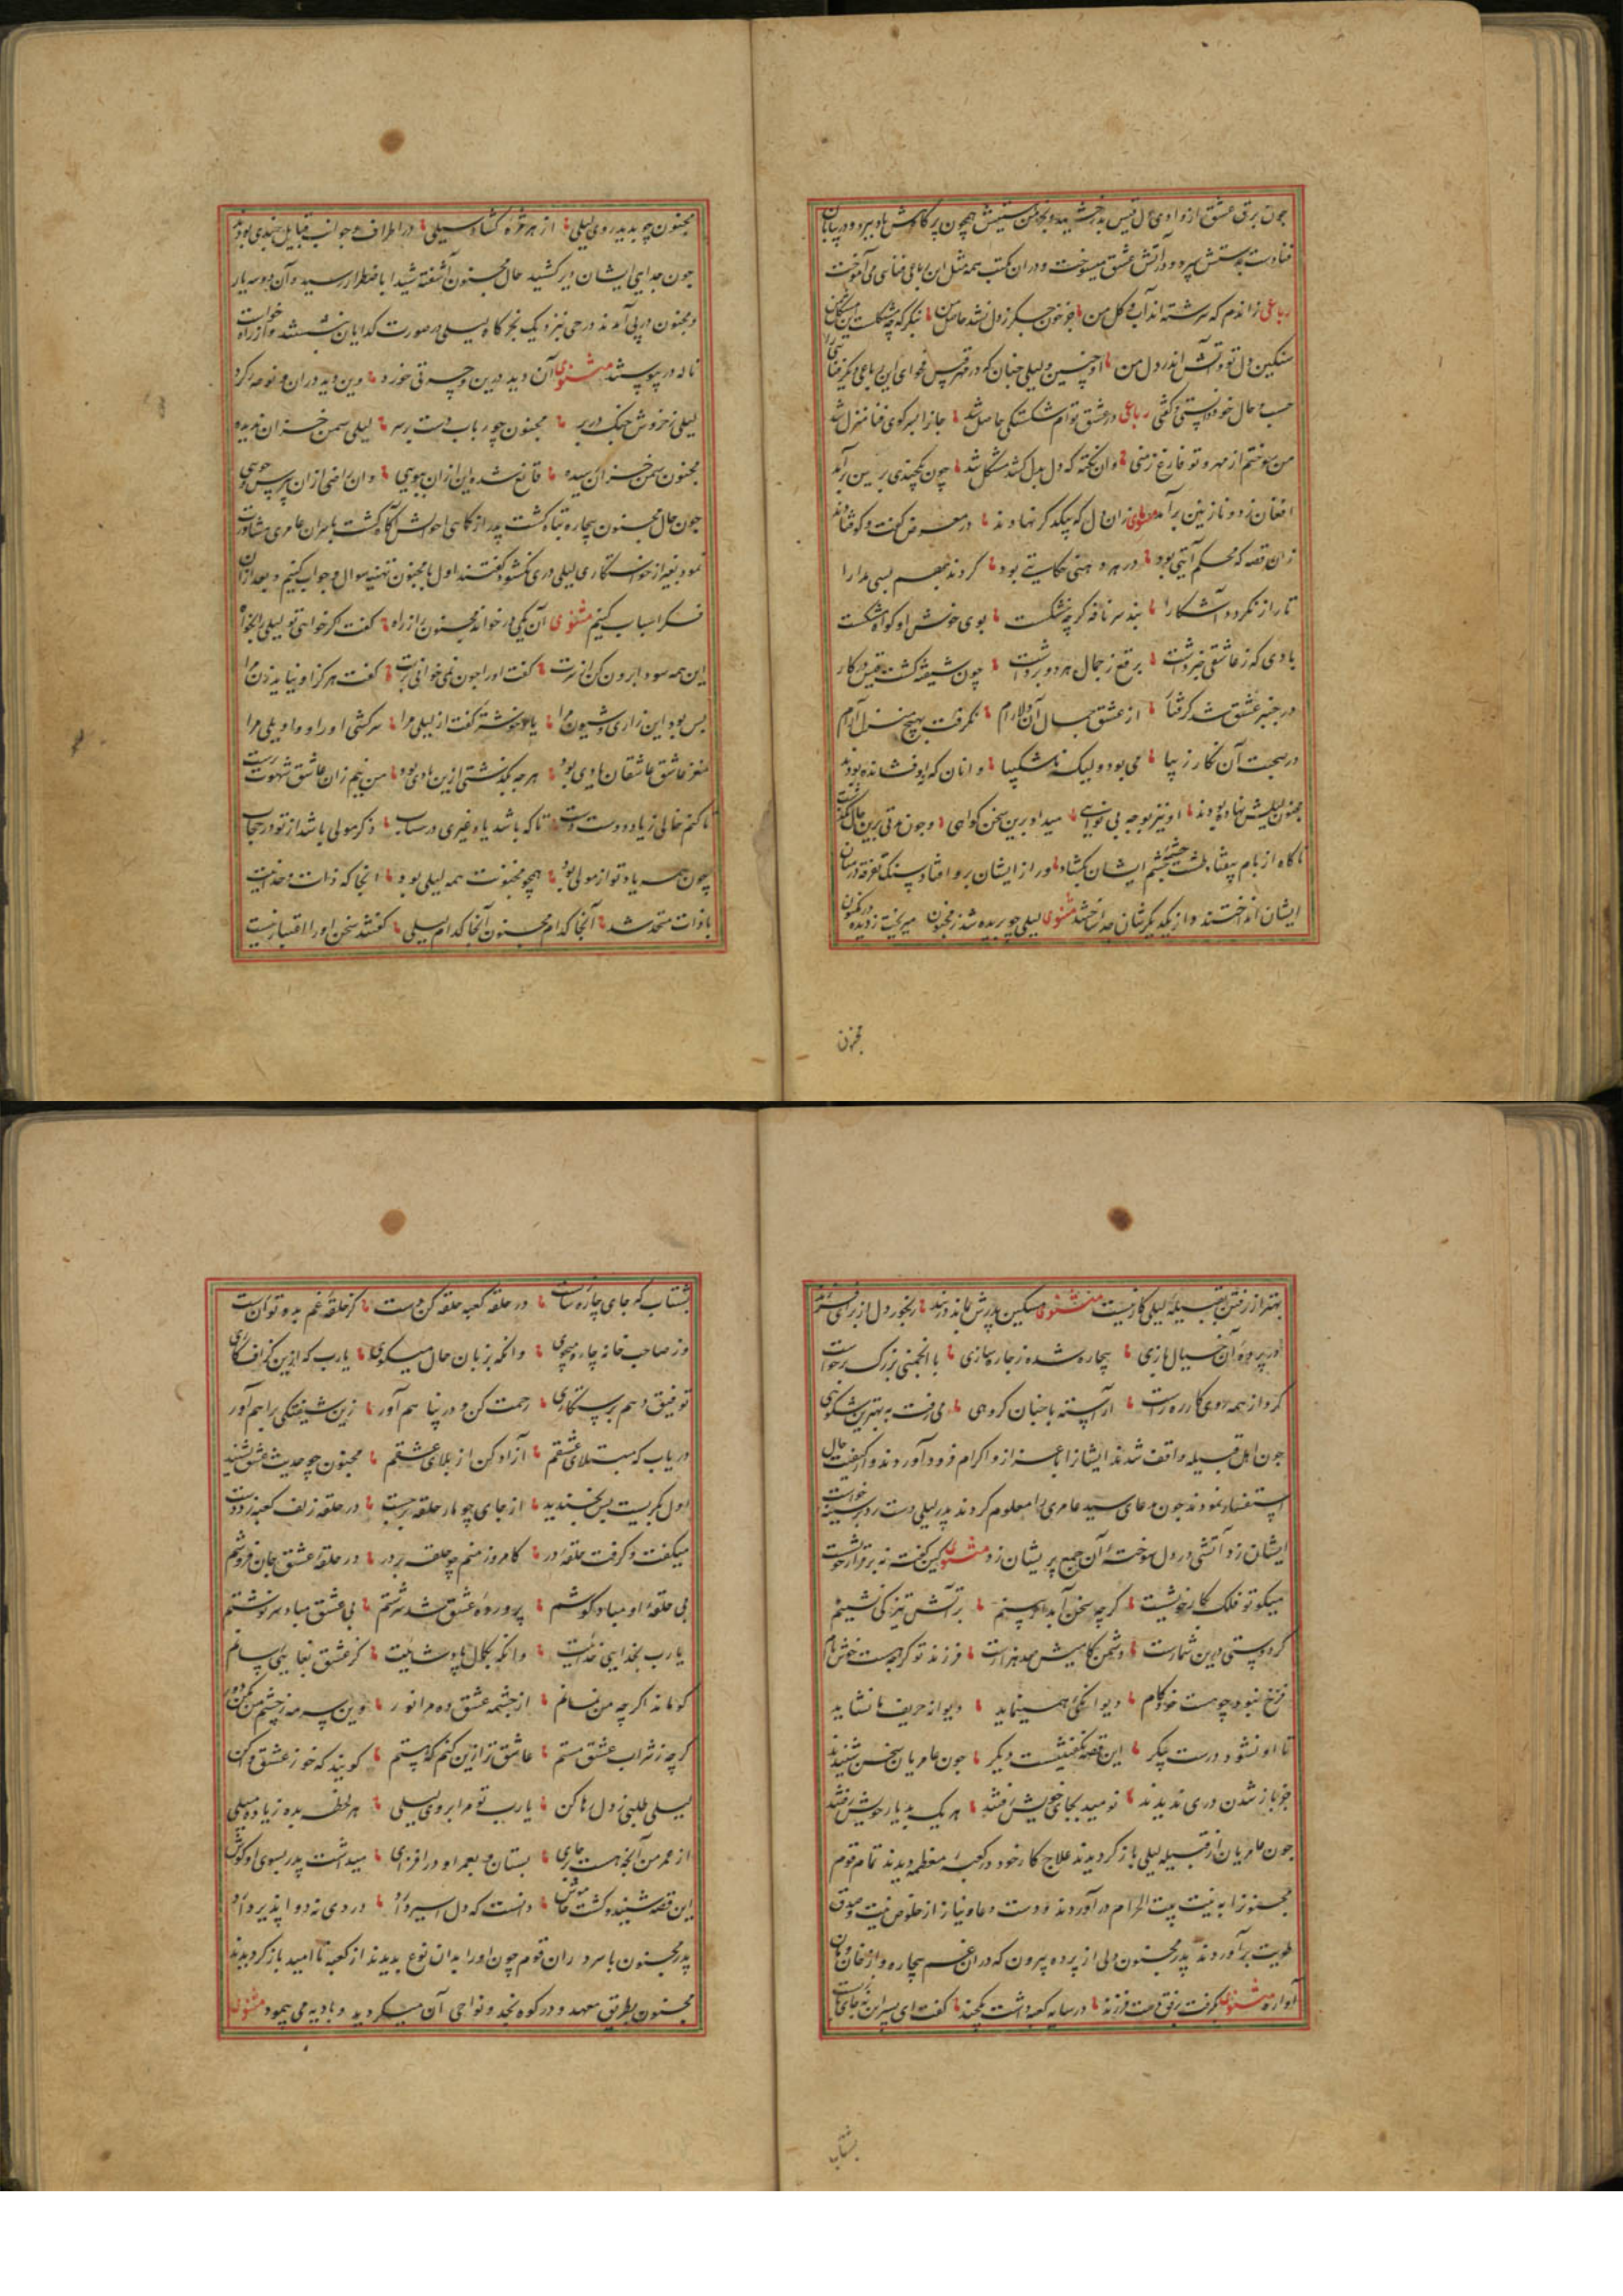 چون برق عشق از وادی
فنا دست بدستش سپرد و در آتش عشق میسوخت و در ان مکتب همه مثل این رباعی فنائی می آموخت
رباعی زاندم که سرشته اند آب و گل من جز خون جگر ز دل نشد حاصل من بنگر که چه مشکلست
سنگین دل تو و آتش اندر دل من
حسب حال خود دانستی و گفتی رباعی در عشق توام شکستگی حاصل شد جانرا بسر کوی فنا منزل شد
من سوختم از مهر و تو فارغ ز منی وان نکته که دل بدل کشد مشکل شد چون یکچندی برین برآمد
افغان ز دو نازنین برآمد مثنوی زان دل که بیکدگر نهادند در معرض گفت و گو فتادند
زان قصه که محکم آیتی بود در هر دهنی حکایتی بود کردند بهم بسی مدارا
تا راز نگردد آشکارا بند سر نافه گرچه خشکست بوی خوش او گواه مشکست
بادی که ز عاشقی خبر داشت برقع ز جمال هر دو برداشت چون شیفته گشت قیس در کار
در چنبر عشق شد گرفتار از عشق جمال آن دلارام نگرفت بهیچ منزل آرام
در صحبت آن نگار زیبا می بود ولیک ناشکیبا وانان که اوفتاده بودند
مجنون لقبش نهاده بودند او نیز بوجه بی نوایی میداد برین سخن گواهی و چون مدتی برین حال
ناگاه از بام بیفتاد طشت
ایشان انداختند و از یکدیگرشان جدا ساختند مثنوی لیلی چو بریده شد ز مجنون میریخت ز دیده در مکنون
مجنون
مجنون چو بدید روی لیلی از هر مژه گشاد سیلی در اطراف و جوانب قبایل
چون جدایی ایشان دیر کشید حال مجنون آشفته شیدا باضطرار رسید و آن دو سه یار
و مجنون در پی آمدند در حی نیز نزدیک خرگاه لیلی در صورت گدایان نشستند
ناله در پیوستند مثنوی آن دید درین و حسرتی خورد وین دید دران و نوحه کرد
لیلی ز خروش چنگ در بر مجنون چو رباب دست بر سر لیلی سمن خزان ندیده
مجنون چمن خزان رسیده قانع شده این ازان ببویی وان راضی ازان
چون حال مجنون بیچاره تباه گشت پدر از کاهی احوالش آگاه گشت با سران عامری مشاورت
نمود بغیر از خواستگاری لیلی دری نگشود گفتند اول با مجنون تهنیه سوال و جواب کنیم و بعد ازان
فکر اسباب کنیم مثنوی آن یکی در خواند مجنون را ز راه گفت اگر خواهی تو لیلی را بخواه
این همه سودا برون کن از سرت گفت او را چون نمی خوانی برت گفت هرگز او نباید زن مرا
بس بود این زاری و شیون مرا
مغز عاشق عاشقان یادی بود هر چه بگذشتی ازین بادی بود من نیم زان عاشق شهوت پرست
تا کنم خالی ز یاد دوست دست تا که باشد یاد غیری در حساب ذکر مولی باشد از تو در حجاب
چون همه یاد تو از مولی بود همچو مجنونت همه لیلی بود انجا که ذات وحدانیت
با ذات متحد شد آنجا کدام مجنون آنجا کدام لیلی گفتند سخن او را اعتبار نیست
بهتر از رفتن بقبیله لیلی کار نیست مثنوی مسکین پدرش بمانده در بند رنجور دل از برای فرزند
در پرده آن خیال بازی بیچاره شده ز چاره سازی با انجمنی بزرگ برخاست
کرد از همه روی کار ره راست آراسته با چنان گروهی می رفت به بهترین شکوهی
چون اهل قبیله واقف شدند ایشانرا باعزاز و اکرام فرود آوردند و از کیفیت حال
استفسار نمودند چون مدعای سید عامری را معلوم کردند پدر لیلی دست رد بر سینه
ایشان زد و آتشی در دل سوخته آن جمع پریشان زد مثنوی کین گفته نه برقرار خویشست
میگو تو فلک بکار خویشست گرچه سخن آبدار بینم بر آتش تیز کی نشینم
گر دوستی درین شمارست دشمن کامیش صد هزارست فرزند تو گرچه هست خوش نام
فرخ نبود چو هست خود کام دیوانگی همی نماید دیوانه حریف ما نشاید
تا او نشود درست پیکر این قصه نگفتنیست دیگر چون عامریان سخن شنیدند
جز باز شدن دری ندیدند نومید بجای خویش رفتند هر یک بدیار خویش رفتند
چون عامریان از قبیله لیلی باز گردیدند علاج کار خود در کعبه معظمه دیدند تمام قوم
مجنونرا به نیت بیت الحرام در آوردند و دست دعا و نیاز از خلوص نیت و صدق
طویت برآوردند پدر مجنون ولی از پرده بیرون که دران غم بیچاره و از خان و مان
آواره مثنوی بگرفت برفق دست فرزند در سایه کعبه داشت یکچند گفت ای پسر این نه جای بازیست
بشتاب
بشتاب که جای چاره سازیست در حلقه کعبه حلقه کن دست کز حلقه غم بدو توان رست
وز صاحب خانه چاره میجوی وانگه بزبان حال میگوی یارب که ازین گزاف کاری
توفیق دهم برستگاری رحمت کن و در پناهم آور زین شیفتگی براهم آور
دریاب که مبتلای عشقم آزاد کن از بلای عشقم مجنون چو حدیث عشق بشنید
اول بگریست پس بخندید از جای چو مار حلقه برجست در حلقه زلف کعبه زد دست
میگفت و گرفت حلقه در بر کامروز منم چو حلقه بر در در حلقه عشق جان فروشم
بی حلقه او مباد گوشم پرورده عشق شد سرشتم بی عشق مباد سرنوشتم
یارب بخدایی خداییت وانگه بکمال پادشاییت کز عشق بغایتی رسانم
کو ماند اگرچه من نمانم از چشمه عشق ده مرا نور وین سرمه ز چشم من مکن دور
گرچه ز شراب عشق مستم عاشق تر ازین کنم که هستم گویند که خو ز عشق واکن
لیلی طلبی ز دل رها کن یارب تو مرا بروی لیلی هر لحظه بده زیاده میلی
از عمر من آنچه هست بر جای بستان و بعمر او در افزای میداشت پدر بسوی او گوش
این قصه شنید و گشت خاموش دانست که دل اسیر دارد دردی نه دوا پذیر دارد
پدر مجنون با سرداران قوم چون او را بدان نوع بدیدند از کعبه نا امید باز گردیدند
مجنون بطریق معهود در کوه نجد و نواحی آن میگردید و بادیه می پیمود مثنوی